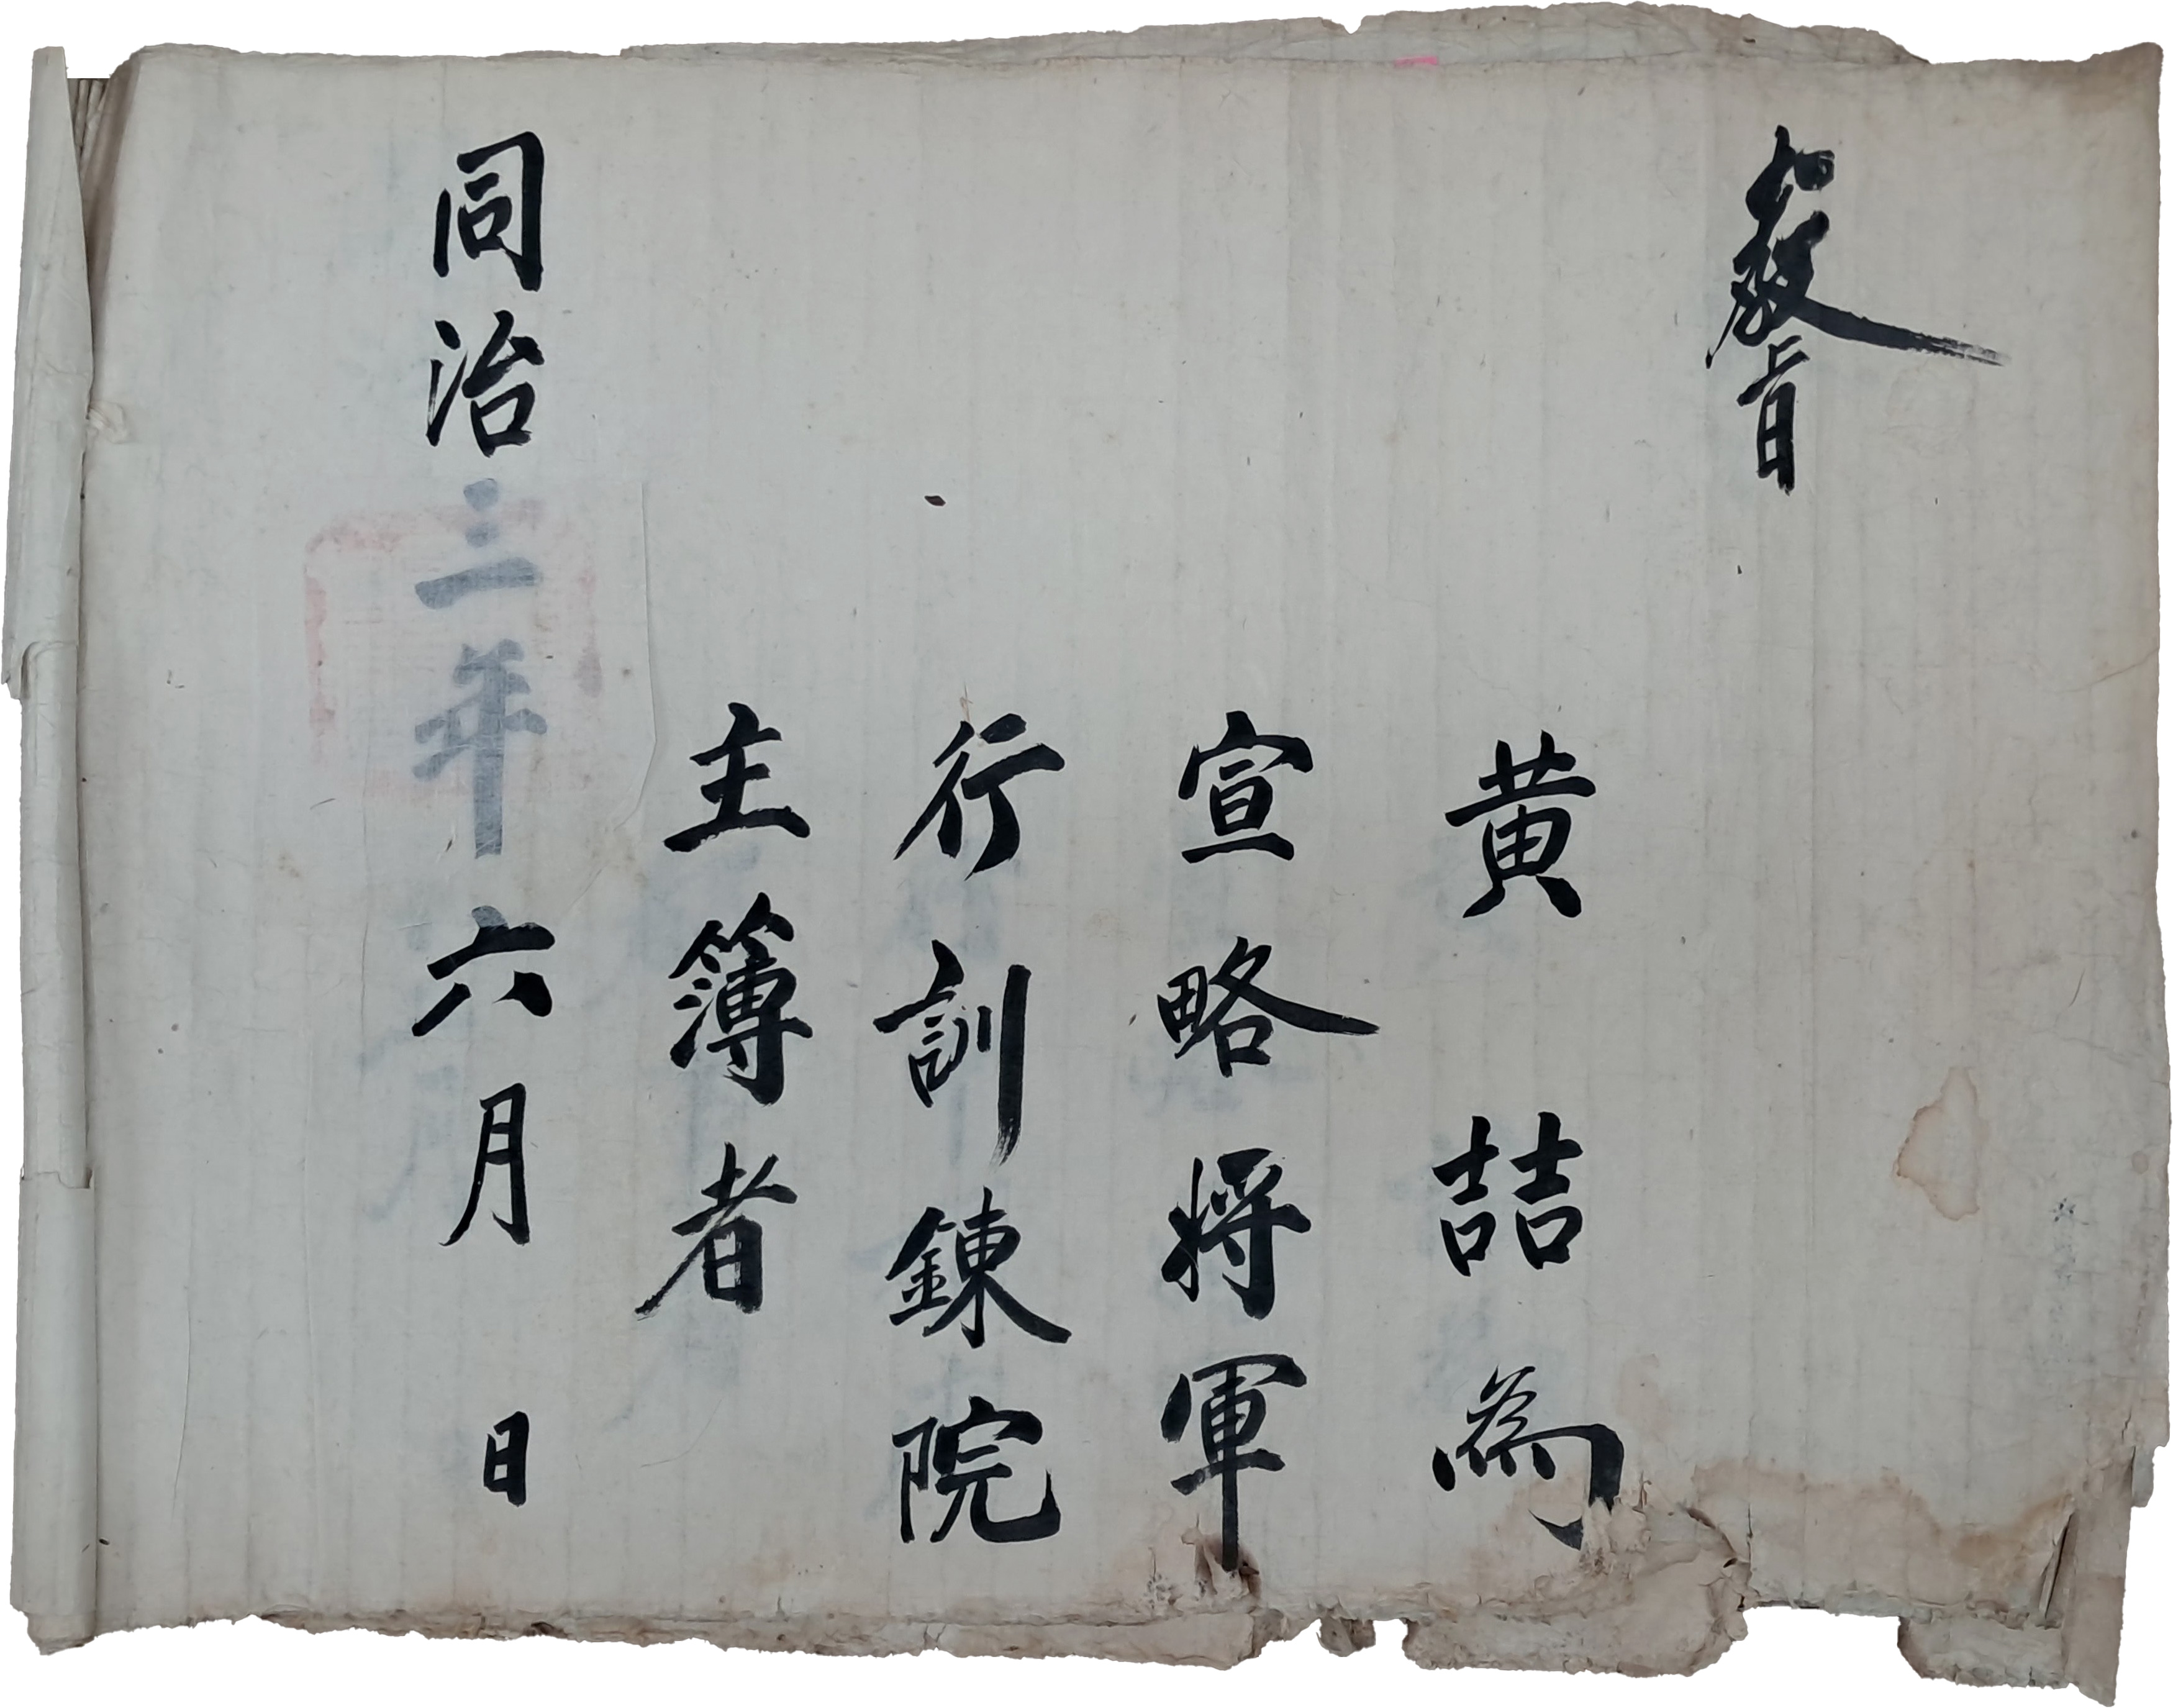 教旨
黄喆為
宣略将軍
行訓鍊院
主簿者
同治三年六月日